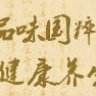 品味国粹
健康养生